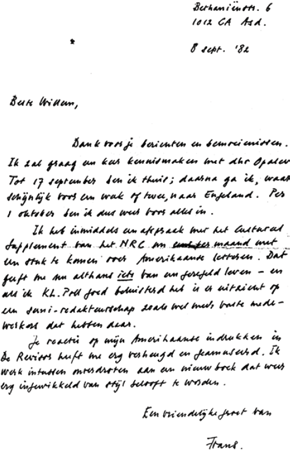 Bethaniënstr. 6
1012 CA Asd.
8 sept. '82
Beste Willem,
Dank voor je berichten en bemoeienissen.
Ik zal graag een keer kennismaken met dhr Opalev
Tot 17 september ben ik thuis; daarna ga ik, waar
schijnlijk voor een week of twee, naar Engeland. Per
1 oktober ben ik dus weer voor alles in.
Ik heb inmiddels een afspraak met het Cultureel
Supplement van het NRC om maand met
een stuk te komen over Amerikaanse letteren. Dat
geeft me nu althans iets van een geregeld leven – en
als ik K.L. Poll goed beluisterd heb is er uitzicht op
een semi-redakteurschap zoals wel meer vaste mede-
werkers dat hebben daar.
Je reactie op mijn Amerikaanse indrukken in
De Revisor heeft me erg verheugd en geamuseerd. Ik
werk intussen onverdroten aan een nieuw boek dat weer
erg ingewikkeld van stijl belooft te worden.
Een vriendelijke groet van
Frans.